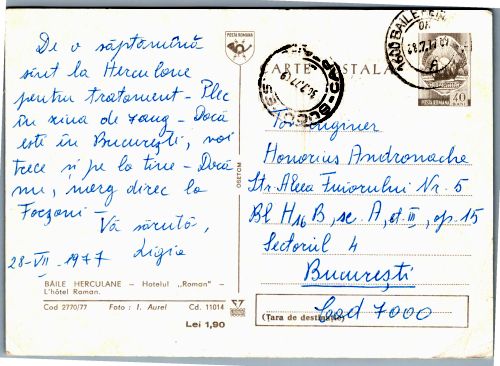 De o săptămînă
sînt la Herculane
pentru tratament - Plec
în ziua de 7 aug - Dacă
este în București, voi
trece și pe la tine - Dacă
nu, merg direc la
Focșani -
Vă sărută,
Ligia
28-VII-1977
BĂILE HERCULANE – Hotelul „Roman” –
L'hôtel Roman.
Cod 2770/77 Foto: I. Aurel Cd. 11014
Lei 1,90
OSETCM
POȘTA ROMÂNĂ
CARTE POSTALĂ
POȘTA ROMÂNĂ
40
Inginer
Honorius Andronache
Str. Aleea Fuiorului Nr. 5
Bl H16 B, sc. A, et. III, ap. 15
Sectorul 4
București
Cod 7000
(Țara de destinație)